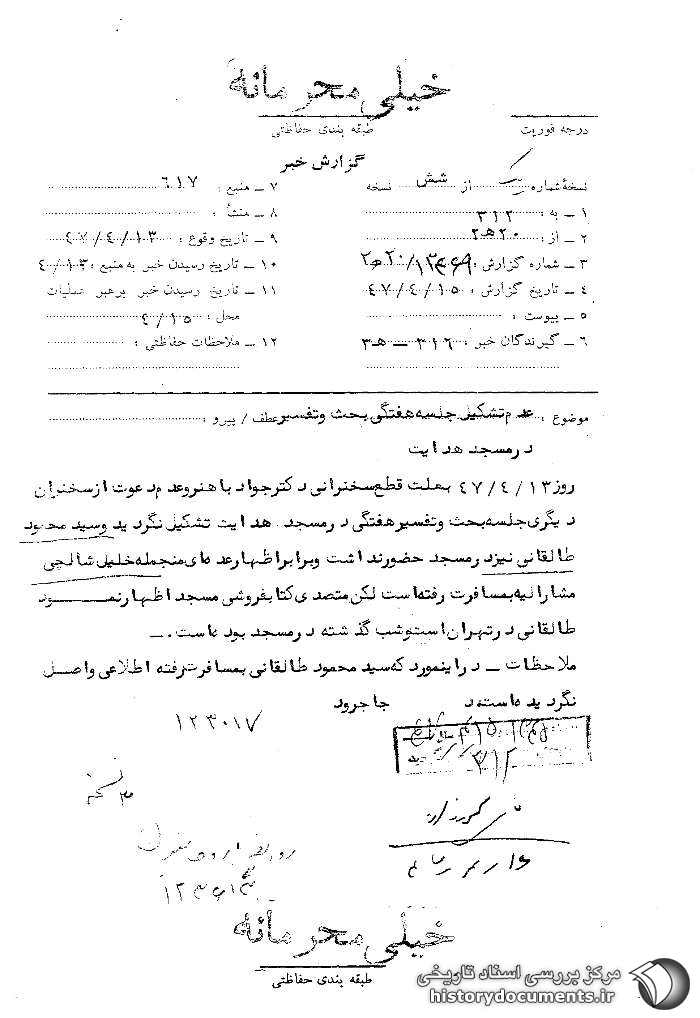 خیلی محرمانه
درجه فوریت
طبقه بندی حفاظتی
گزارش خبر
نسخهٔ شماره یک از شش نسخه
۱ ـ به : ۳۱۲
۲ ـ از : ۲۰ ه‍ ۲
۳ ـ شماره گزارش :
۴ ـ تاریخ گزارش : ۴۷/۴/۱۵
۵ ـ پیوست :
۶ ـ گیرندگان خبر : ۳۱۶ ـ ه‍ ۳
۷ ـ منبع : ۶۱۷
۸ ـ منشأ :
۹ ـ تاریخ وقوع : ۴۷/۴/۱۳
۱۰ ـ تاریخ رسیدن خبر به منبع : ۴/۱۳
۱۱ ـ تاریخ رسیدن خبر برهبر عملیات
محل : ۴/۱۵
۱۲ ـ ملاحظات حفاظتی :
موضوع : عدم تشکیل جلسه هفتگی بحث و تفسیر عطف / پیرو :
در مسجد هدایت
روز ۴۷/۴/۱۳ بعلت قطع سخنرانی دکتر جواد باهنر و عدم دعوت از سخنران
دیگری جلسه بحث و تفسیر هفتگی در مسجد هدایت تشکیل نگردید و سید محمود
طالقانی نیز در مسجد حضور نداشت و برابر اظهار عده ای منجمله خلیل شالچی
مشارالیه بمسافرت رفته است لکن متصدی کتابفروشی مسجد اظهار نمـــــود
طالقانی در تهران است و شب گذشته در مسجد بوده است . ـ
ملاحظات ـ در اینمورد که سید محمود طالقانی بمسافرت رفته اطلاعی واصل
نگردیده است د جاجرود
۱۲۳۰۱۷
۳۱۲
خیلی محرمانه
طبقه بندی حفاظتی
مرکز بررسی اسناد تاریخی
historydocuments.ir